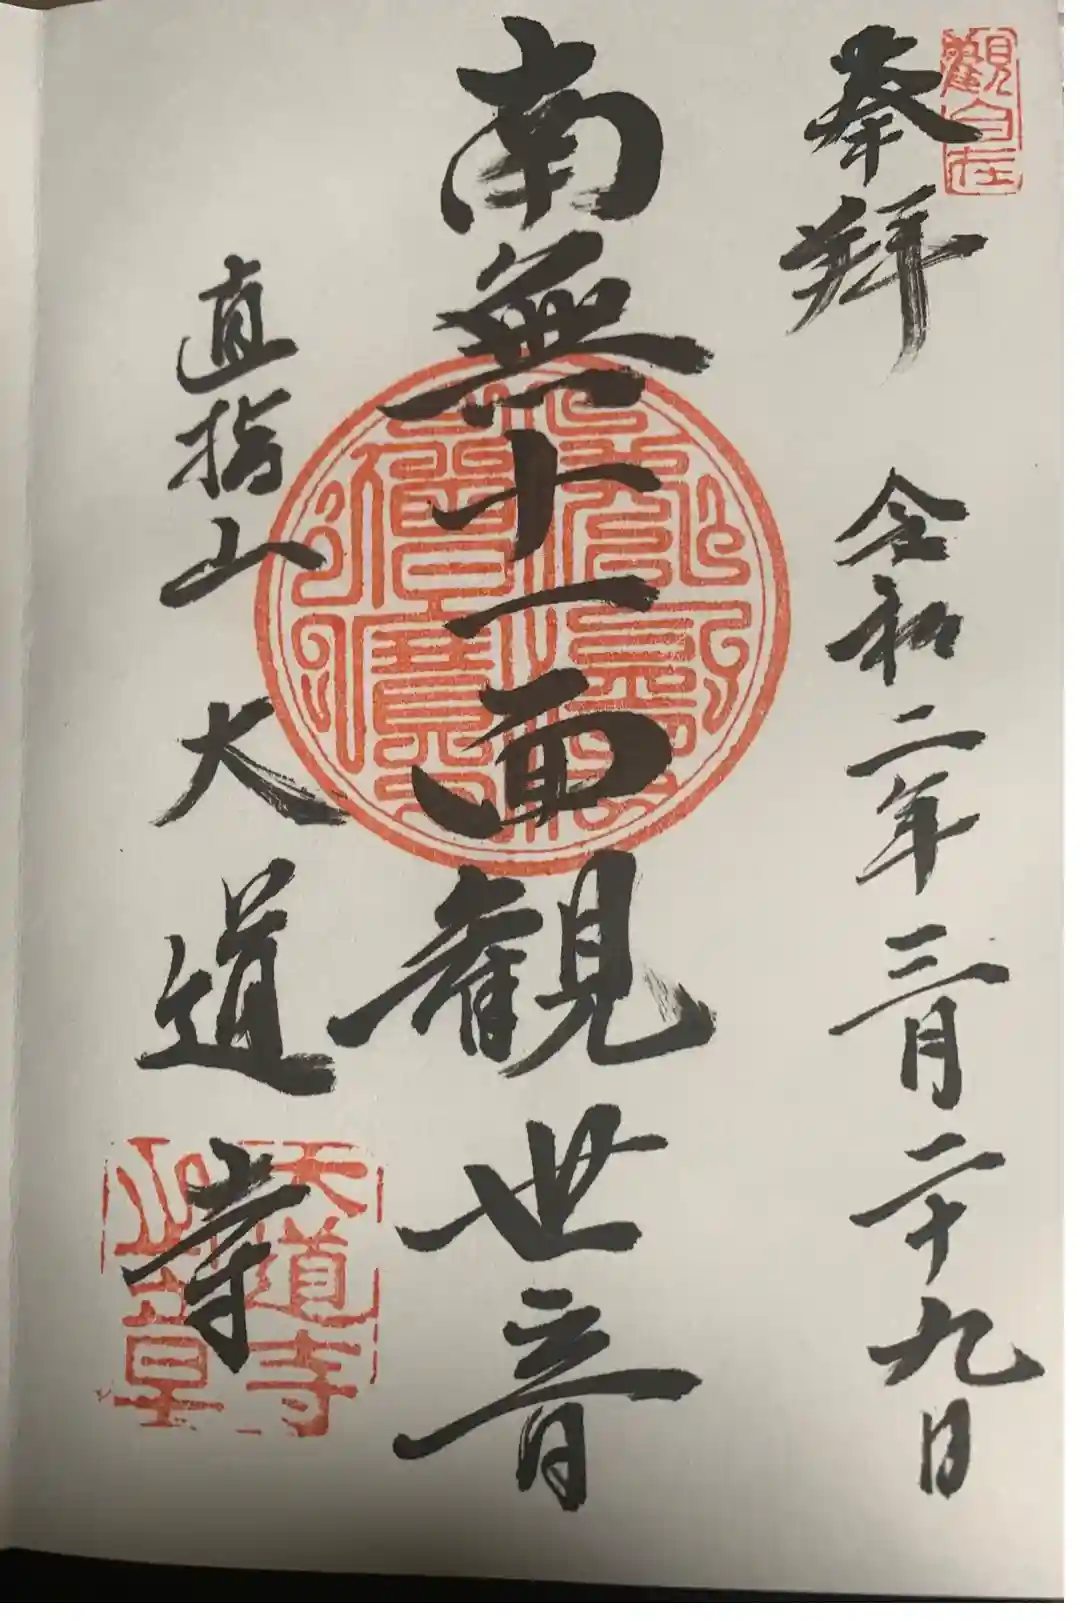 觀自在
奉拝 令和二年三月二十九日
南無十一面観世音
直指山 大道寺
大道寺
印章